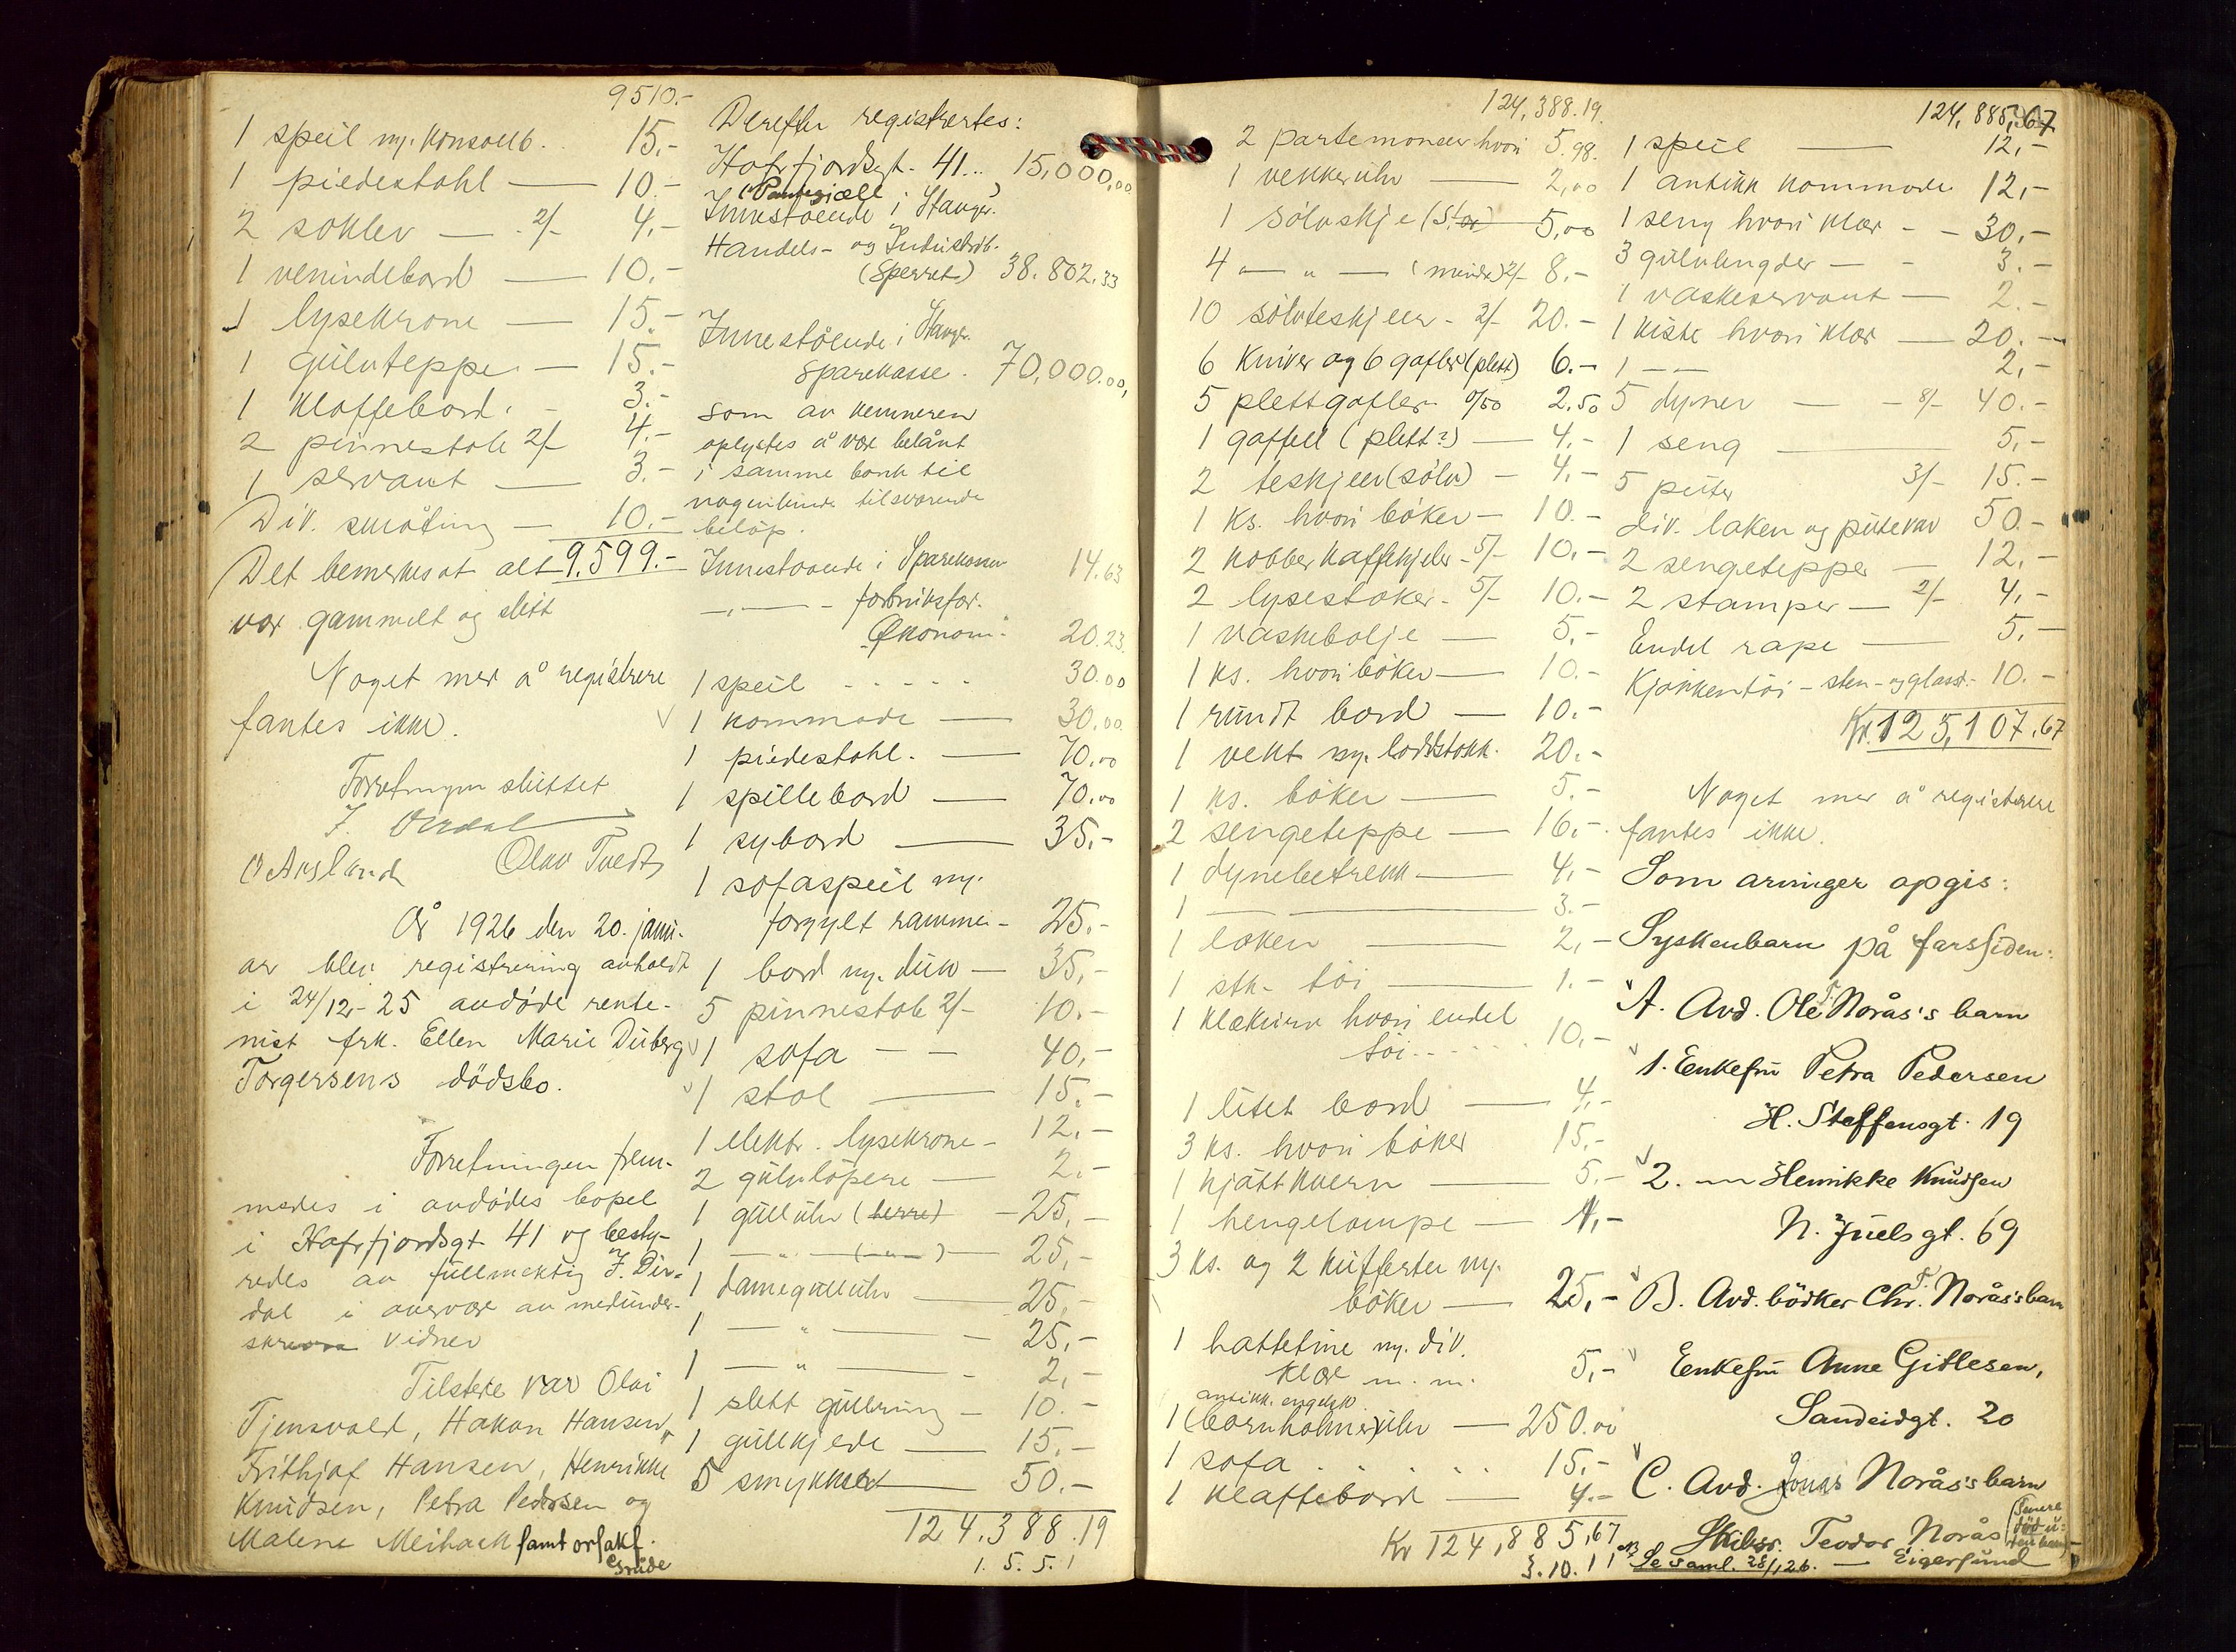 9510.-
1 speil m/. konsollb. 15.-
1 piedestahl — 10.-
2 sokler — 2/- 4.-
1 venindebord — 10.-
1 lysekrone — 15.-
1 gulvteppe — 15.-
1 klaffebord. - 3.-
2 pinnestole 2/- 4.-
1 servant — 3.-
Div. småting — 10.-
Det bemerkes at alt 9.599.-
var gammelt og slitt
Noget mer å registrere
fantes ikke.
Forretningen sluttet
O Ausland Olav Tvedt
År 1926 den 20. janu-
ar blev registrering avholdt
i 24/12-25 avdöde rente-
nist frk. Ellen Marie Duberg
Torgersens dödsbo.
Forretningen frem-
medes i avdödes bopel
i Hafrfjordsgt 41 og besty-
redes av fullmektig J. Dir-
dal i overvær av medunder-
skrevne vidner
Tilstede var Olai
Tjensvold, Hakon Hansen,
Frithjof Hansen, Henrikke
Knudsen, Petra Pedersen og
Malene Meihack samt orsakf.
Grude
Derefter registrertes:
Hafrfjordsgt. 41... 15,000,00
(Pantegjæld )
Innestående i Stavgr.
Handels- og Industrib.
(Sperret) 38.802.33
Innestående i Stavgr.
Sparekasse. 70,000.00,
som av kemneren
oplystes å være belånt
i samme bank til
nogenlunde tilsvarende
belöp.
Innestaaende i Sparekassen 14.63
—„— - forbruksfor.
Økonomi. 20.23.
1 speil - - - - - 30.00
1 kommode — 30.00
1 piedestahl. — 10.00
1 spillebord — 70.00
1 sybord — 35.-
1 sofaspeil m/.
forgylt ramme - 25.-
1 bord m/. duk — 35.-
5 pinnestole 2/- 10.-
1 sofa — — 40.-
1 stol — 15.-
1 elektr. lysekrone - 12.-
2 gulvlöpere — 2.-
1 gulluhr (herre) - 25.-
1 —„— (—„—) — 25.-
1 damegulluhr — 25.-
1 —„— - 25.-
1 —„— - 2.-
1 slett gullring - 10.-
1 gullkjede — 15.-
5 smykker — 50.-
124,388.19
1. 5. 5. 1
124,388.19.
2 portemonæer hvori 5.98.
1 vekkeruhr — 2,00
1 sölvskje (stor) 5,00
4 —„— (mindre) 2/- 8.-
10 sölvteskjeer - 2/- 20.-
6 kniver og 6 gafler (plett) 6.-
5 plettgafler 0/50 2.50
1 gaffel (plett?) — 4.-
2 teskjeer (sölv) - 4.-
1 ks. hvori böker - 10.-
2 kobber kaffekjeler - 5/- 10.-
2 lysestaker - 5/- 10.-
1 vaskebalje — 5.-
1 ks. hvori böker — 10.-
1 rundt bord — 10.-
1 vekt m/. loddstokk. 20.-
1 ks. böker — 5.-
2 sengeteppe — 16.-
1 dynebetrekk — 4.-
1 — — 3.-
1 laken — 2,-
1 stk. töi — 1.-
1 klækurv hvori endel
töi . . . . . . 10,-
1 litet bord — 4.-
3 ks. hvori böker 15.-
1 kjöttkvern — 5.-
1 hengelampe — 1,-
3 ks. og 2 kufferter m/.
böker — 25,-
1 hattetine m/. div.
klær m. m. 5,-
antikk. engelsk
1 (bornholmer)uhr — 250.00
1 sofa . . . . . 15,-
1 klaffebord — 4.-
Kr 124,885,67
3. 10. 11
124,885,67
1 speil — 12,-
1 antikk kommode 12,-
1 seng hvori klær - - 30,-
3 gulvlengder — - 3.-
1 vaskeservant — 2.-
1 kiste hvori klær — 20.-
1 — — 2,-
5 dyner — - 8/- 40.-
1 seng — 5,-
5 puter 3/- 15.-
div. laken og putevar 50.-
2 sengetepper — 12,-
2 stamper — 2/- 4,-
Endel rape — 5,-
Kjökkentöi - sten- og glasst.- 10.-
Kr. 125,107.67
Noget mer å registrere
fantes ikke.
Som arvinger opgis:
Syskenbarn på farssiden:
A. Avd. Ole T. Norås's barn
1. Enkefru Petra Pedersen
H. Steffensgt. 19
2. —„— Henrikke Knudsen
N. Juels gt. 69
B. Avd. bödker Chr. T. Norås's barn
Enkefru Anne Gitlesen,
Sandeidgt. 20
C. Avd. Jonas Norås's barn
Skibsr. Teodor Norås (senere
död u-
ten barn)
NB Se saml. 28/1 26. — Eigersund